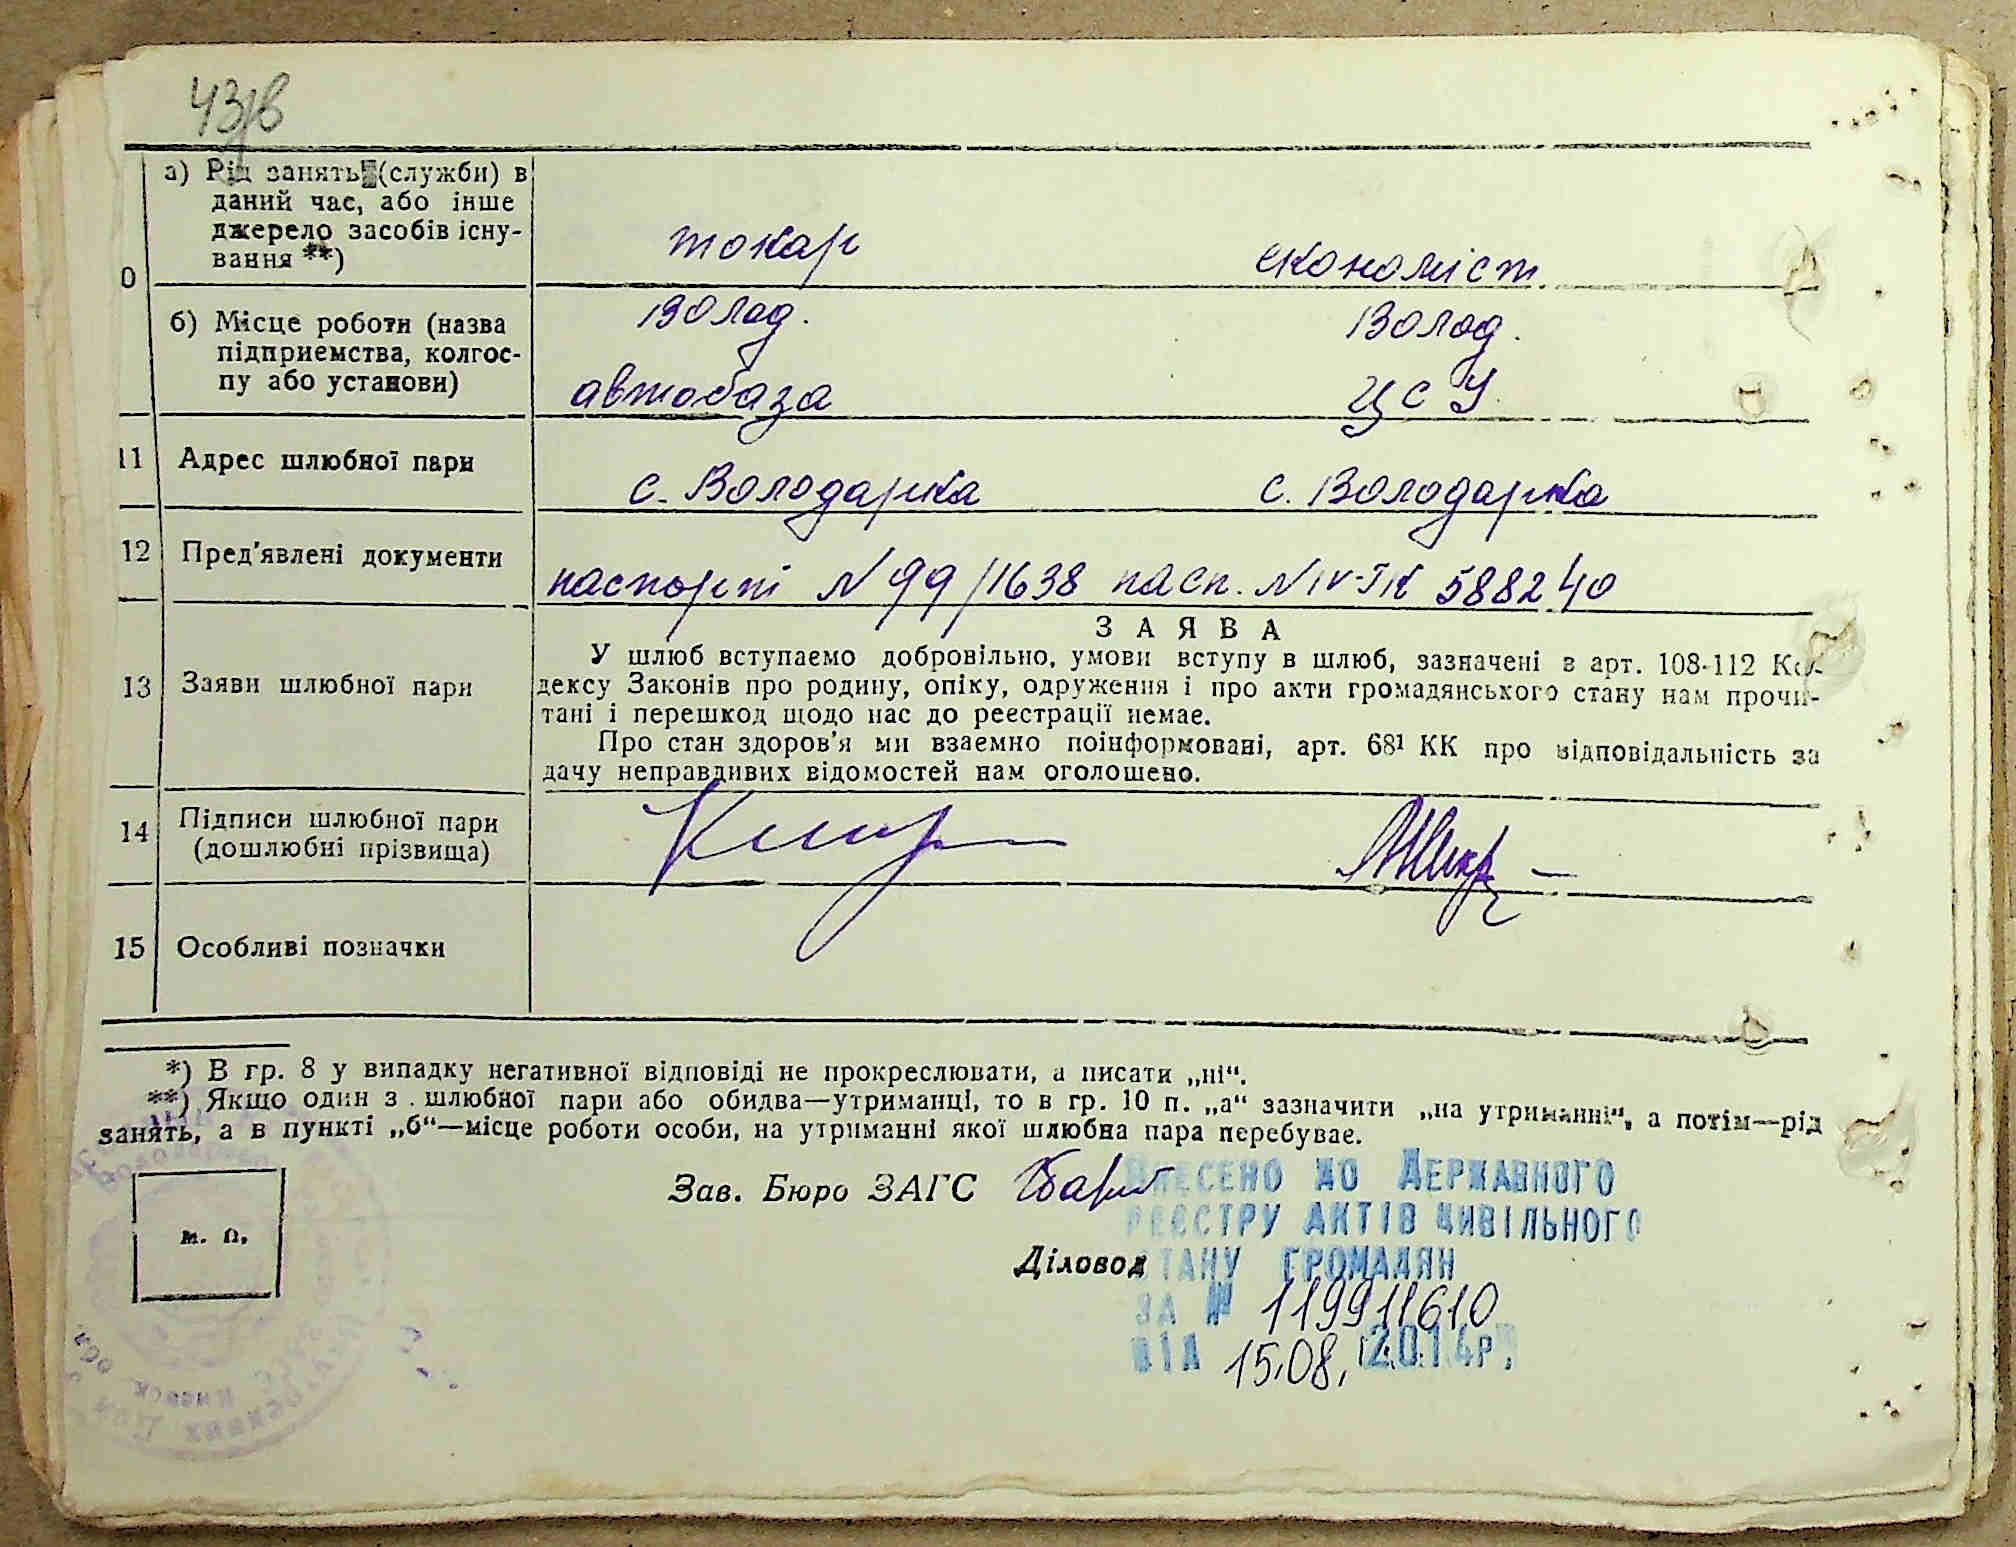 43зв
а) Рід занять (служби) в
даний час, або інше
джерело засобів існу-
вання **)
0
токар
економіст
б) Місце роботи (назва
підприємства, колгос-
пу або установи)
Волод.
Волод.
автобаза
ЦСУ
11 Адрес шлюбної пари
с. Володарка
с. Володарка
12 Пред'явлені документи
паспорт N 99/1638 пасп. N IV-ІК 588240
13 Заяви шлюбної пари
ЗАЯВА
У шлюб вступаємо добровільно, умови вступу в шлюб, зазначені в арт. 108-112 Ко-
дексу Законів про родину, опіку, одруження і про акти громадянського стану нам прочи-
тані і перешкод щодо нас до реєстрації немає.
Про стан здоров'я ми взаємно поінформовані, арт. 68¹ КК про відповідальність за
дачу неправдивих відомостей нам оголошено.
14 Підписи шлюбної пари
(дошлюбні прізвища)
15 Особливі позначки
*) В гр. 8 у випадку негативної відповіді не прокреслювати, а писати „ні“.
**) Якщо один з шлюбної пари або обидва—утриманці, то в гр. 10 п. „а“ зазначити „на утриманні“, а потім—рід
занять, а в пункті „б“—місце роботи особи, на утриманні якої шлюбна пара перебуває.
Зав. Бюро ЗАГС
Діловод
м. п.
ВНЕСЕНО ДО ДЕРЖАВНОГО
РЕЄСТРУ АКТІВ ЦИВІЛЬНОГО
СТАНУ ГРОМАДЯН
ЗА № 119911610
ВІД 15.08. 2014р.